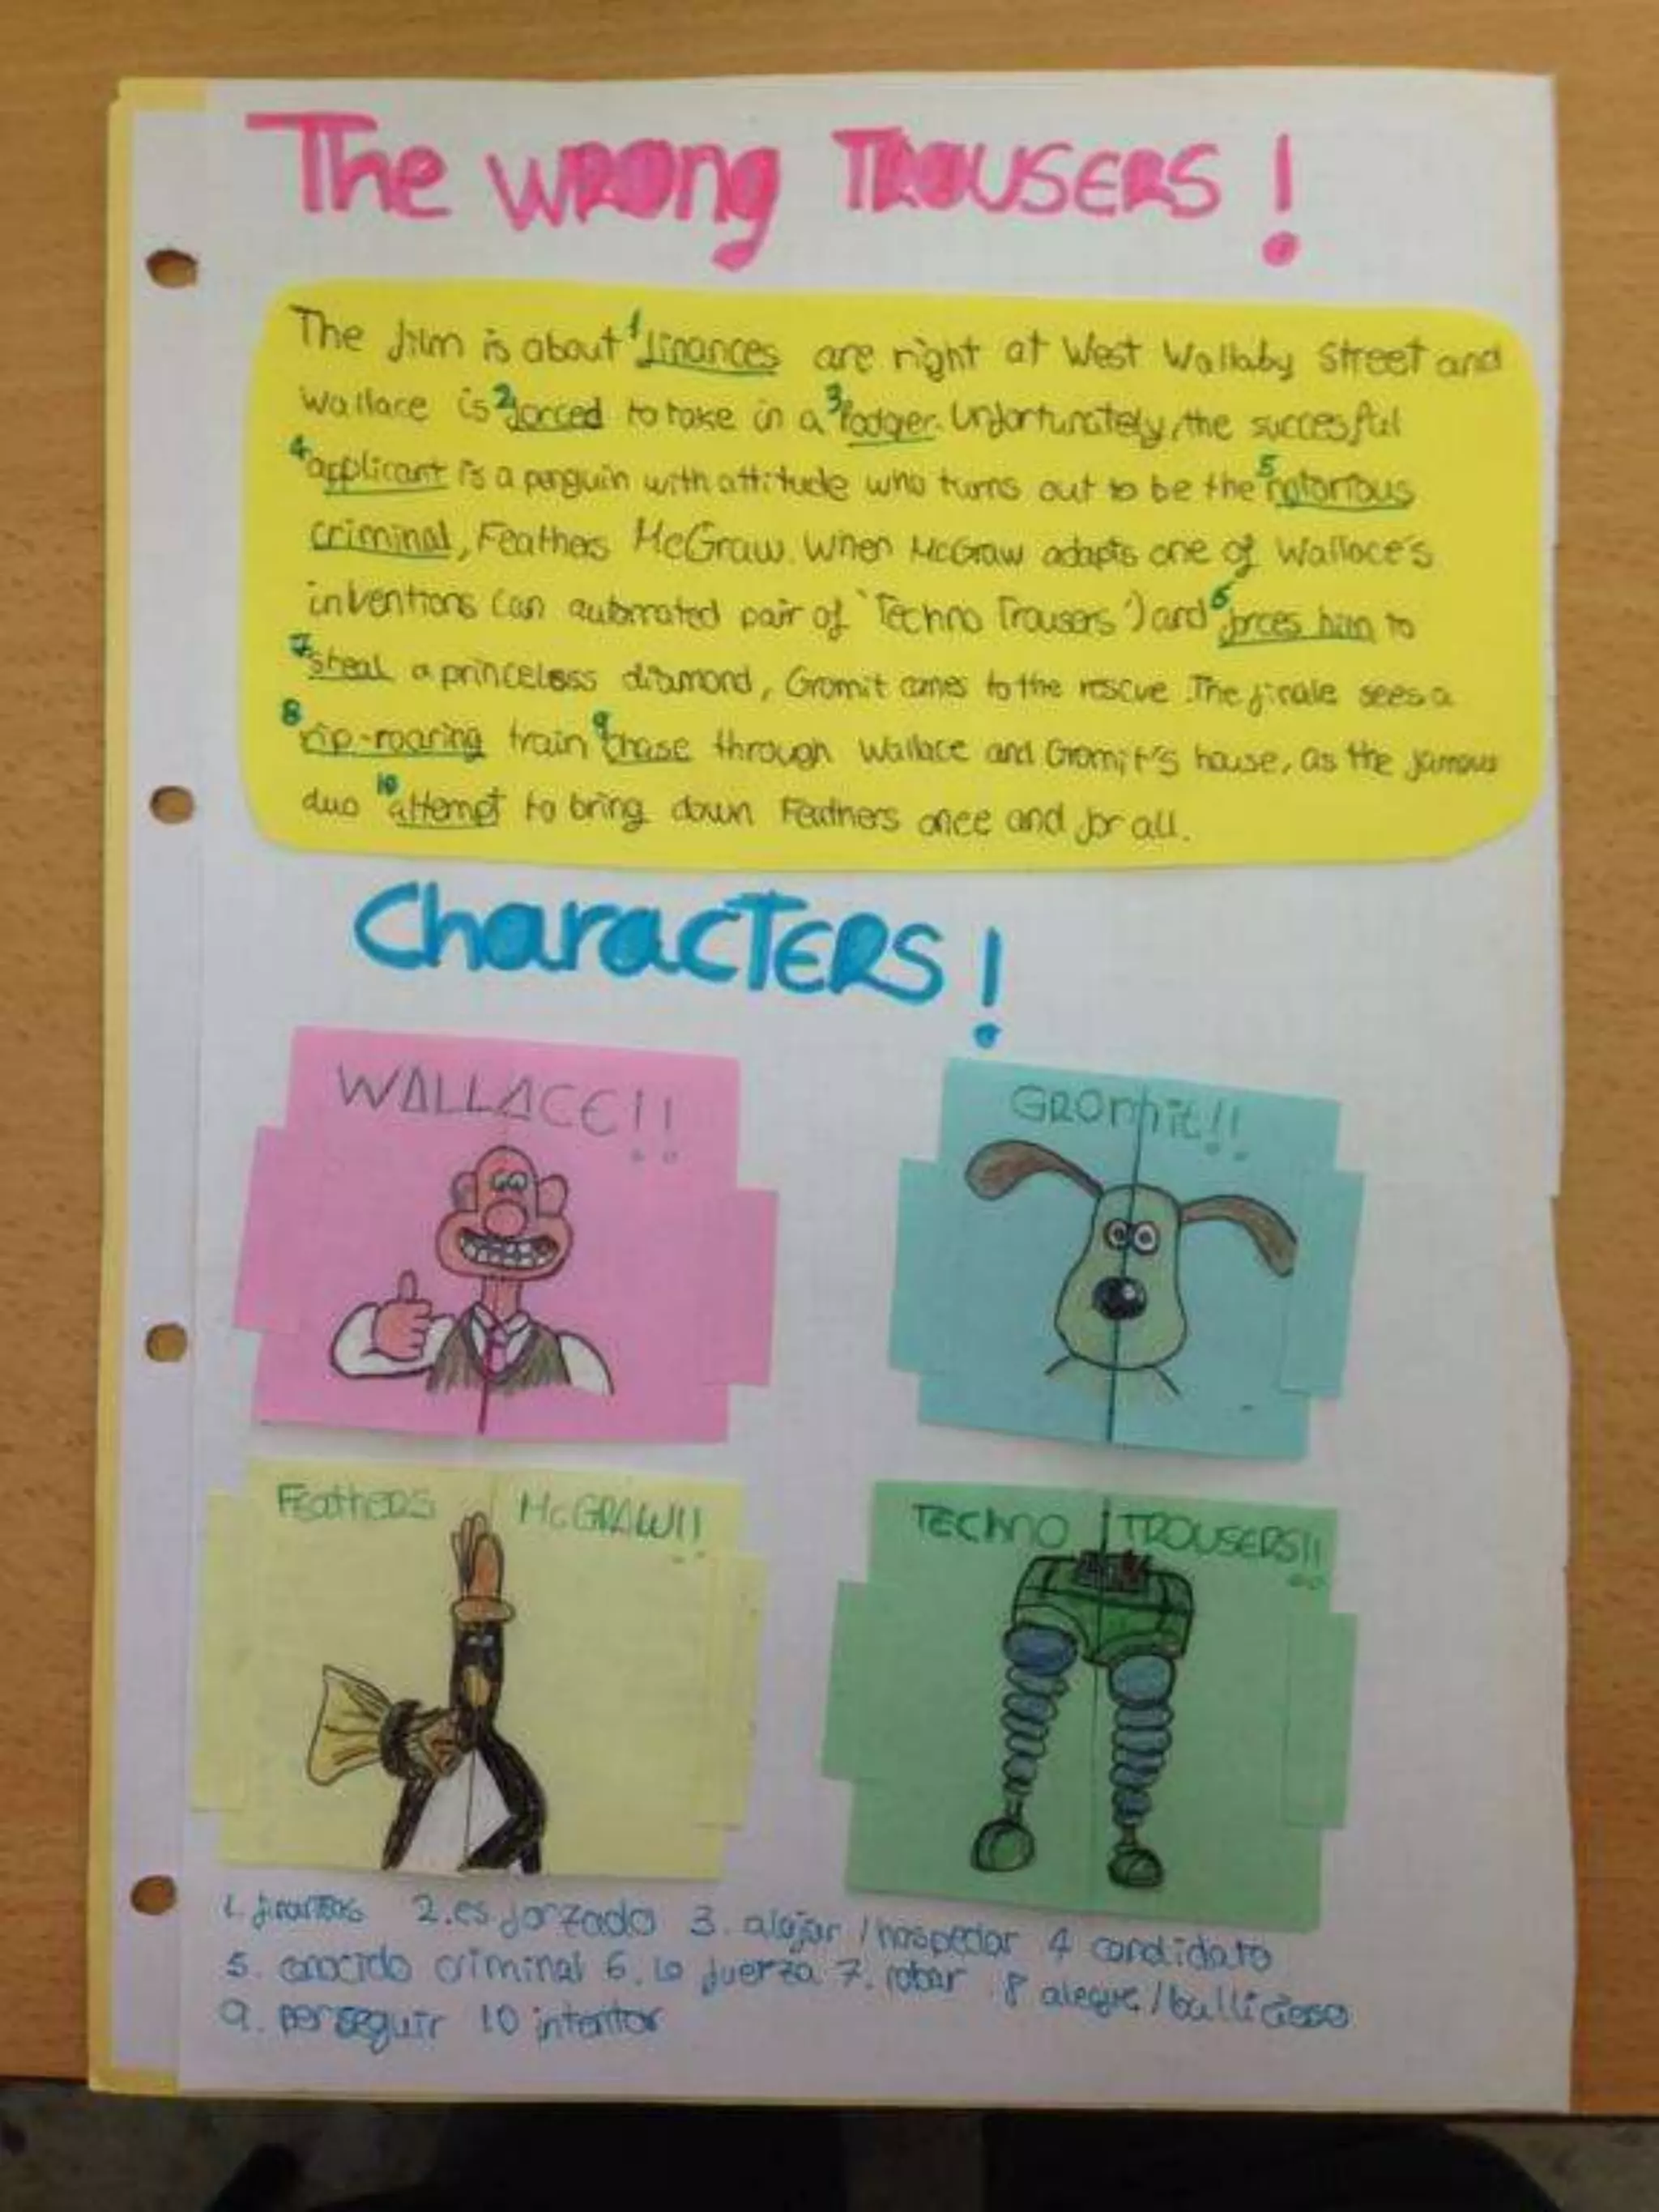 The wrong TROUSERS!
The film is about ¹finances are right at West Wallaby Street and
Wallace is ²forced to take in a ³lodger. Unfortunately, the succesful
⁴applicant is a penguin with attitude who turns out to be the ⁵notorious
criminal, Feathers McGraw. When McGraw adapts one of Wallace's
inventions (an automated pair of 'Techno Trousers') and ⁶forces him to
⁷steal a princeless diamond, Gromit comes to the rescue. The finale sees a
⁸rip-roaring train ⁹chase through Wallace and Gromit's house, as the famous
duo ¹⁰attempt to bring down Feathers once and for all.
CharacTERS!
WALLACE!!
GROmit!!
FeatheRS McGRAW!!
TEChnO TROUSERS!!
1. finantzas 2. es forzado 3. alojar / hospedar 4 candidato
5. conocido criminal 6. lo fuerza 7. robar 8 alegre / bullicioso
9. perseguir 10 intentar